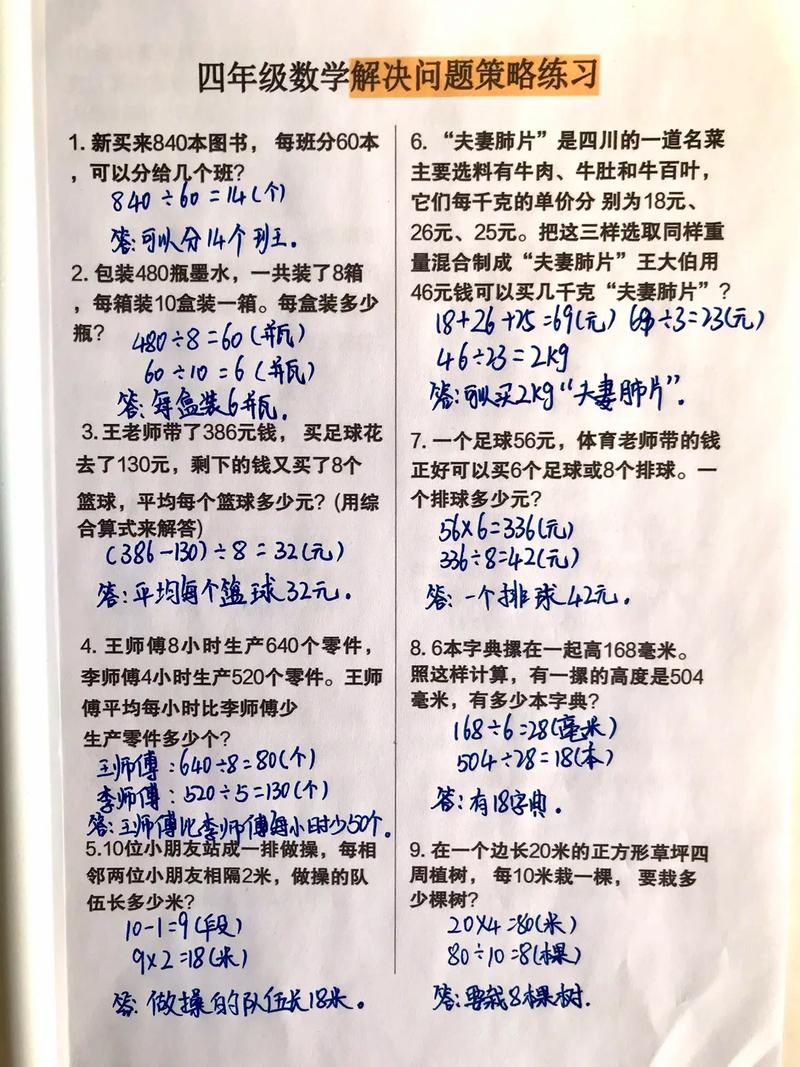 四年级数学解决问题策略练习
1. 新买来840本图书， 每班分60本
，可以分给几个班?
840÷60=14(个)
答:可以分14个班王.
2. 包装480瓶墨水，一共装了8箱
，每箱装10盒装一箱。每盒装多少
瓶?
480÷8=60(瓶)
60÷10=6(瓶)
答:每盒装6瓶.
3.王老师带了386元钱， 买足球花
去了130元，剩下的钱又买了8个
篮球，平均每个篮球多少元? (用综
合算式来解答)
(386-130)÷8=32(元)
答:平均每个篮球32元.
4. 王师傅8小时生产640个零件，
李师傅4小时生产520个零件。王师
傅平均每小时比李师傅少
生产零件多少个?
王师傅:640÷8=80(个)
李师傅:520÷5=130(个)
答:王师傅比李师傅每小时少50个.
5.10位小朋友站成一排做操，每相
邻两位小朋友相隔2米，做操的队
伍长多少米?
10-1=9(段)
9×2=18(米)
答:做操的队伍长18米。
6. “夫妻肺片”是四川的一道名菜
主要选料有牛肉、牛肚和牛百叶，
它们每千克的单价分 别为18元、
26元、25元。把这三样选取同样重
量混合制成“夫妻肺片”王大伯用
46元钱可以买几千克“夫妻肺片”?
18+26+25=69(元) 69÷3=23(元)
46÷23=2kg
答:可以买2kg“夫妻肺片”.
7. 一个足球56元，体育老师带的钱
正好可以买6个足球或8个排球。一
个排球多少元?
56×6=336(元)
336÷8=42(元)
答:一个排球42元.
8. 6本字典摞在一起高168毫米。
照这样计算，有一摞的高度是504
毫米，有多少本字典?
168÷6=28(毫米)
504÷28=18(本)
答:有18字典.
9. 在一个边长20米的正方形草坪四
周植树， 每10米栽一棵， 要栽多
少棵树?
20×4=80(米)
80÷10=8(棵)
答:要栽8棵树.